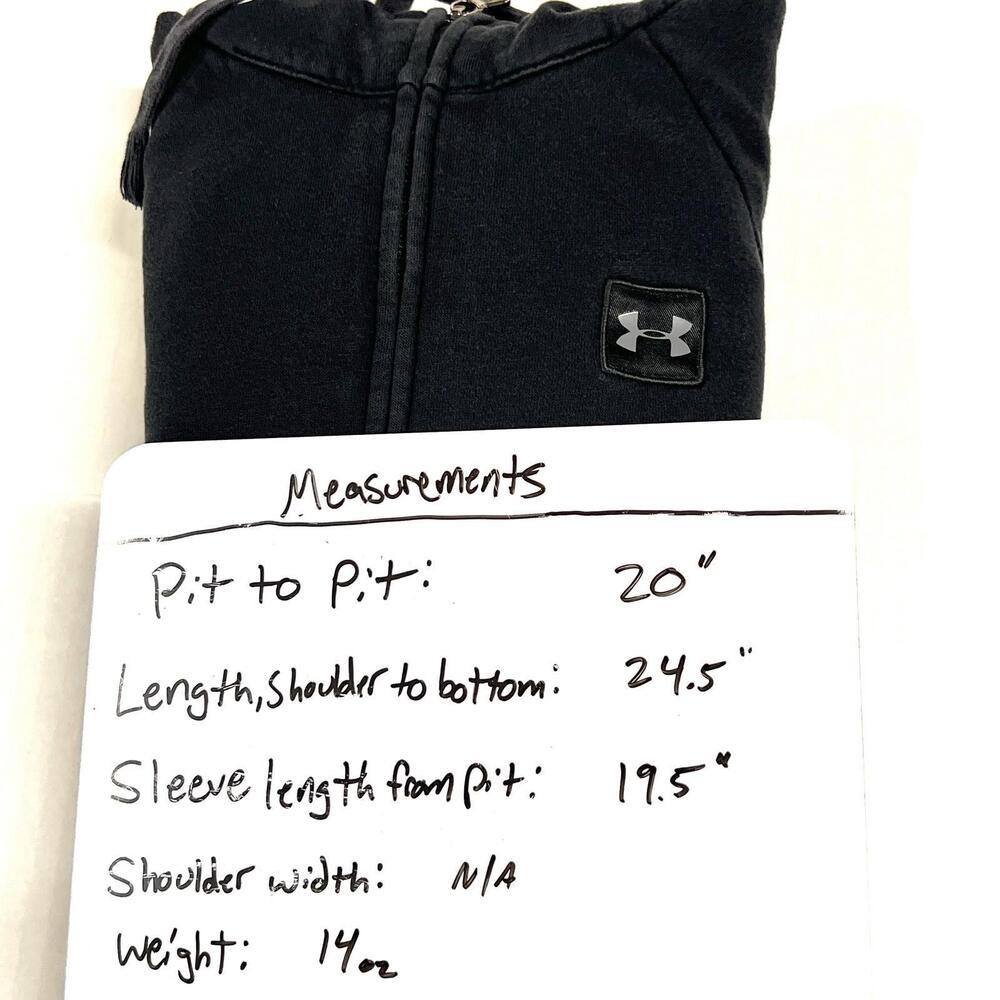 Measurements
Pit to Pit: 20"
Length, Shoulder to bottom: 24.5"
Sleeve length from pit: 19.5"
Shoulder width: N/A
Weight: 14oz